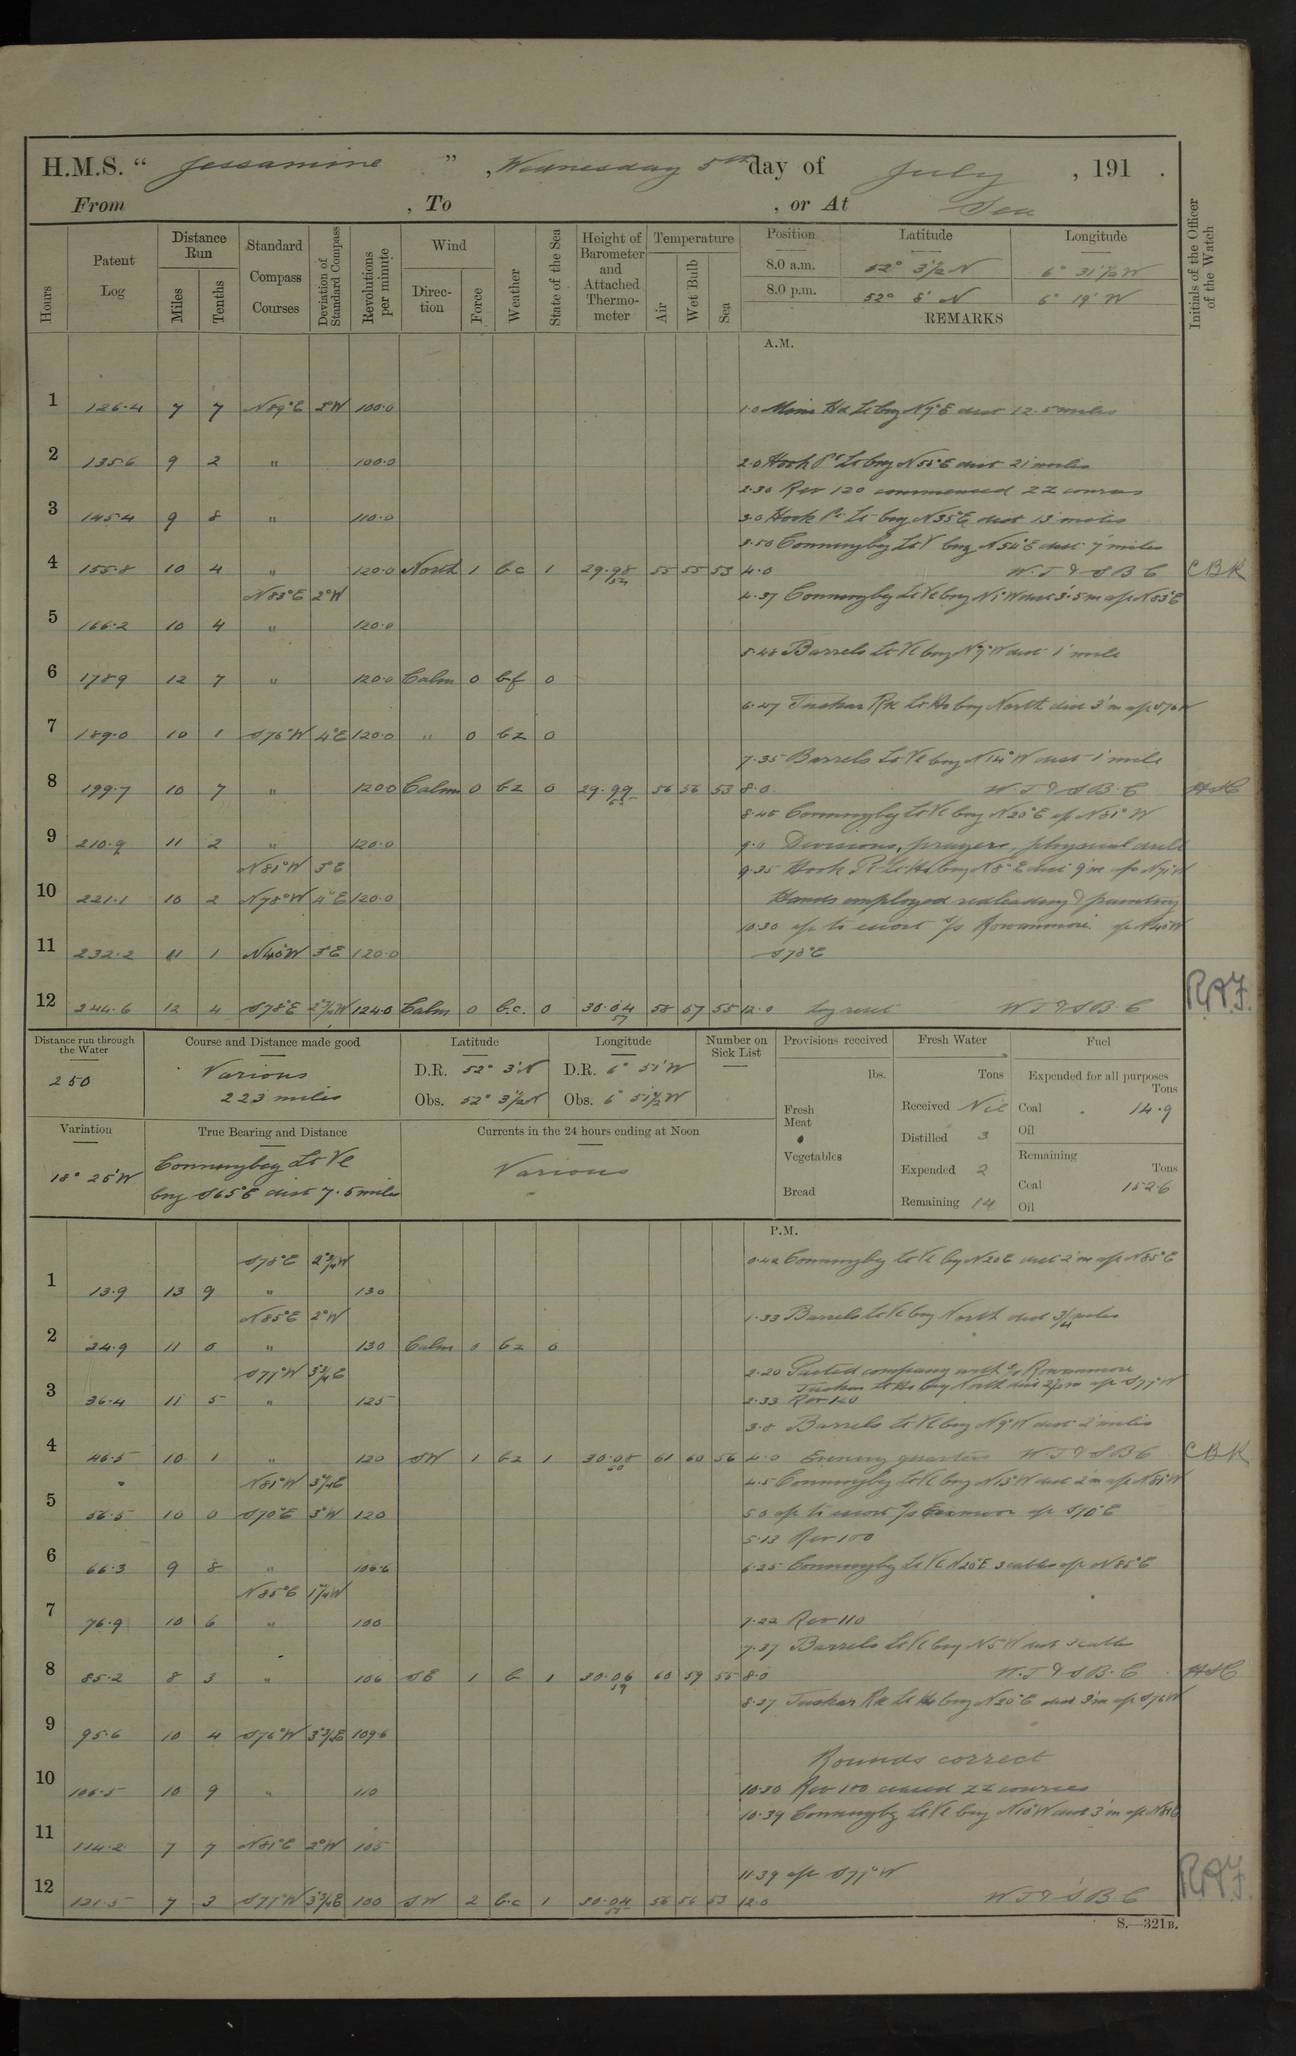 H.M.S. “ Jessamine ” , Wednesday 5th day of July , 191 .
From , To , or At Sea
Hours
Patent Log
Distance Run
Miles
Tenths
Standard Compass Courses
Deviation of Standard Compass
Revolutions per minute
Wind
Direction
Force
Weather
State of the Sea
Height of Barometer and Attached Thermometer
Temperature
Air
Wet Bulb
Sea
Position Latitude Longitude
8.0 a.m. 52° 3½' N 6° 31½' W
8.0 p.m. 52° 5' N 6° 19' W
REMARKS
Initials of the Officer of the Watch
A.M.
1 126.4 7 7 N89°E 3°W 100.0 1.0 Mine Hd Lt brg N9°E dist 12.5 miles
2 135.6 9 2 " 100.0 2.0 Hook Pt Lt brg N55°E dist 21 miles
2.30 Rev 120 commenced ZZ courses
3 145.4 9 8 " 110.0 3.0 Hook Pt Lt brg N35°E dist 13 miles
3.50 Conningbeg Lt V brg N54°E dist 7 miles
4 155.8 10 4 " 120.0 North 1 b.c 1 29.98 55 55 53 4.0 W.T & S B C CBK
N83°E 2°W 4.37 Conningbeg Lt Ve brg N1°W dist 3.5 m a/c N83°E
5 166.2 10 4 " 120.0
5.48 Barrels Lt Ve brg N9°W dist 1 mile
6 178.9 12 7 " 120.0 Calm 0 bf 0
6.47 Tuskar Rk Lt Ho brg North dist 3'm a/c S76W
7 189.0 10 1 S76°W 4°E 120.0 " 0 bz 0
7.35 Barrels Lt Ve brg N14°W dist 1 mile
8 199.7 10 7 " 120.0 Calm 0 bz 0 29.99 56 56 53 8.0 W.T & S B.C
8.45 Conningbeg Lt Ve brg N20°E a/c N81°W
9 210.9 11 2 " 120.0 9.0 Divisions, prayers, physical drill
N81°W 3°E 9.35 Hook Pt Lt Ho brg N8°E dist 9'm a/c N78°W
10 221.1 10 2 N78°W 4°E 120.0 Hands employed redleading & painting
10.30 a/c to escort S/S Rowanmore a/c N40°W
11 232.2 11 1 N40°W 3°E 120.0 S78°E
12 244.6 12 4 S78°E 2¾°W 124.0 Calm 0 b.c. 0 30.04 58 57 55 12.0 Log reset W T & S B.C R.A.F.
Distance run through the Water
250
Course and Distance made good
Various
223 miles
Latitude
D.R. 52° 3' N
Obs. 52° 3½' N
Longitude
D.R. 6° 51' W
Obs. 6° 51½' W
Number on Sick List
Provisions received
lbs.
Fresh Meat
Vegetables
Bread
Fresh Water
Tons
Received Nil
Distilled 3
Expended 2
Remaining 14
Fuel
Expended for all purposes
Tons
Coal 14.9
Oil
Remaining
Tons
Coal 152.6
Oil
Variation
18° 25' W
True Bearing and Distance
Conningbeg Lt Ve
brg S65°E dist 7.5 miles
Currents in the 24 hours ending at Noon
Various
P.M.
S78°E 2¾°W 0.42 Conningbeg Lt Ve brg N20E dist 2'm a/c N85°E
1 13.9 13 9 " 130
N85°E 2°W 1.33 Barrels Lt Ve brg North dist ¾ miles
2 24.9 11 0 " 130 Calm 0 bz 0
S77°W 3¾E 2.20 Parted company with S/S Rowanmore
Tuskar Lt Ho brg North dist a/c S77°W
3 36.4 11 5 " 125 2.33 Rev 120
3.8 Barrels Lt Ve brg N9°W dist 2 miles
4 46.5 10 1 " 120 SW 1 bz 1 30.08 61 60 56 4.0 Evening quarters W.T & S B C CBK
N81°W 3¼E 4.5 Conningbeg Lt Ve brg N15°W dist 2'm a/c N81°W
5 56.5 10 0 S70°E 3°W 120 5.0 a/c to escort S/S a/c S70°E
5.13 Rev 100
6 66.3 9 8 " 106.6 6.25 Conningbeg Lt Ve N20°E 3 cables a/c N85°E
N85°E 1¾W
7 76.9 10 6 " 100 7.22 Rev 110
7.37 Barrels Lt Ve brg N5°W dist 3 cables
8 85.2 8 3 " 106 SE 1 b 1 30.06 59 60 59 55 8.0 W.T & S B.C
8.37 Tuskar Rk Lt Ho brg N20°E dist 3'm a/c S76W
9 95.6 10 4 S76°W 3¾E 109.6
Rounds correct
10 106.5 10 9 " 110 10.30 Rev 100 ceased ZZ courses
10.39 Conningbeg Lt Ve brg N10°W dist 3'm a/c N81E
11 114.2 7 7 N81°E 2°W 105
11.39 a/c S77°W
12 121.5 7 3 S77°W 3¾E 100 SW 2 b.c 1 30.04 55 56 56 53 12.0 W T & S B C R.A.F.
S.—321B.